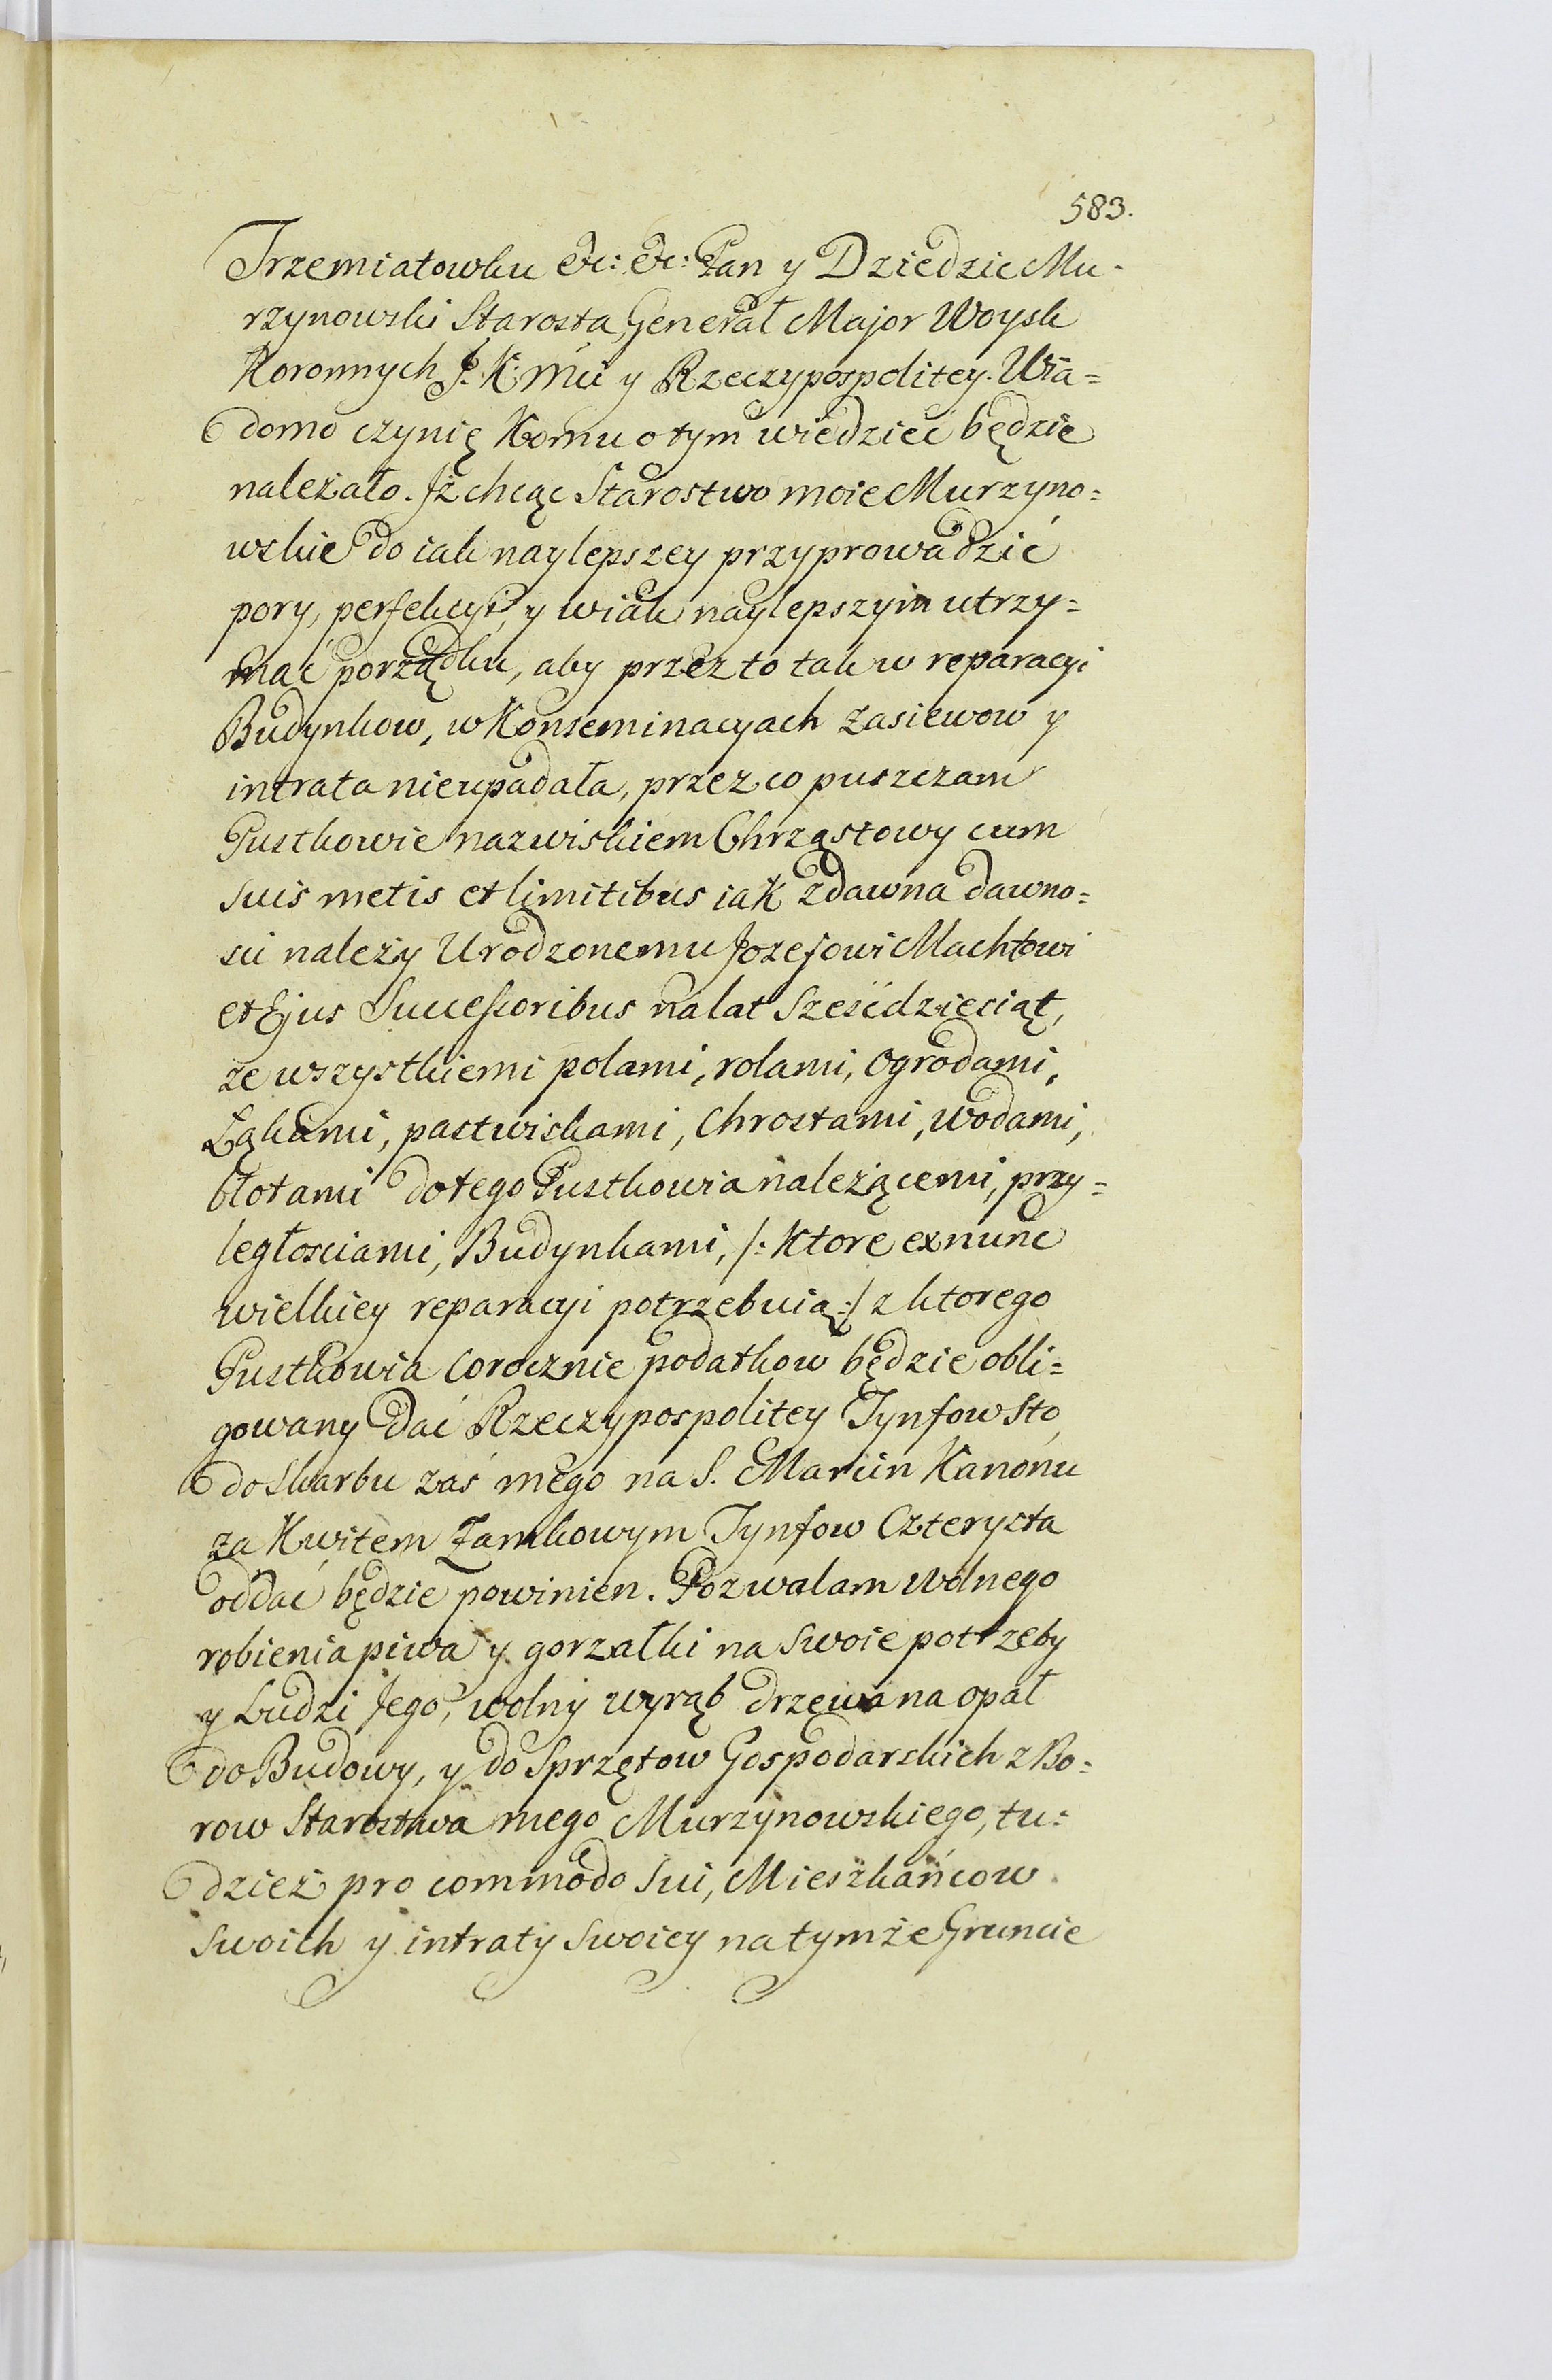 583.
Trzemiatowku &c: &c: Pan y Dziedzic Mu-
rzynowski Starosta, Generał Major Woysk
Koronnych J. K. Mci y Rzeczypospolitey. Wia=
domo czynię Komu o tym wiedzieć będzie
należało. Iż chcąc Starostwo moie Murzyno=
wskie do iak naylepszey przyprowadzić
pory, perfekcyi, y w iak naylepszym utrzy=
mać porządku, aby przez to tak w reparacyi
Budynkow, w Konseminacyach zasiewow y
intrata nieupadała, przez co puszczam
Pustkowie nazwiskiem Chrząstowy cum
suis metis et limitibus iak zdawna dawno=
sci należy Urodzonemu Jozefowi Machtowi
et Ejus Successoribus na lat Sześćdziesiąt,
ze wszystkiemi polami, rolami, Ogrodami,
Łąkami, pastwiskami, Chrostami, wodami,
błotami do tego Pustkowia należącemi, przy=
ległosciami, Budynkami, /: Ktore ex nunc
wielkiey reparacyi potrzebuią :/ z ktorego
Pustkowia corocznie podatkow będzie obli=
gowany dać Rzeczypospolitey Tynfow Sto,
do Skarbu zaś mego na S. Marcin Kanonu
za Kwitem Zamkowym Tynfow Czterysta
oddać będzie powinien. Pozwalam wolnego
robienia piwa y gorzałki na Swoie potrzeby
y Ludzi Jego, wolny wyrąb drzewa na opał
do Budowy, y do Sprzętow Gospodarskich z Bo=
row Starostwa mego Murzynowskiego, tu=
dzież pro commodo Sui, Mieszkańcow
Swoich y intraty Swoiey na tymże Gruncie